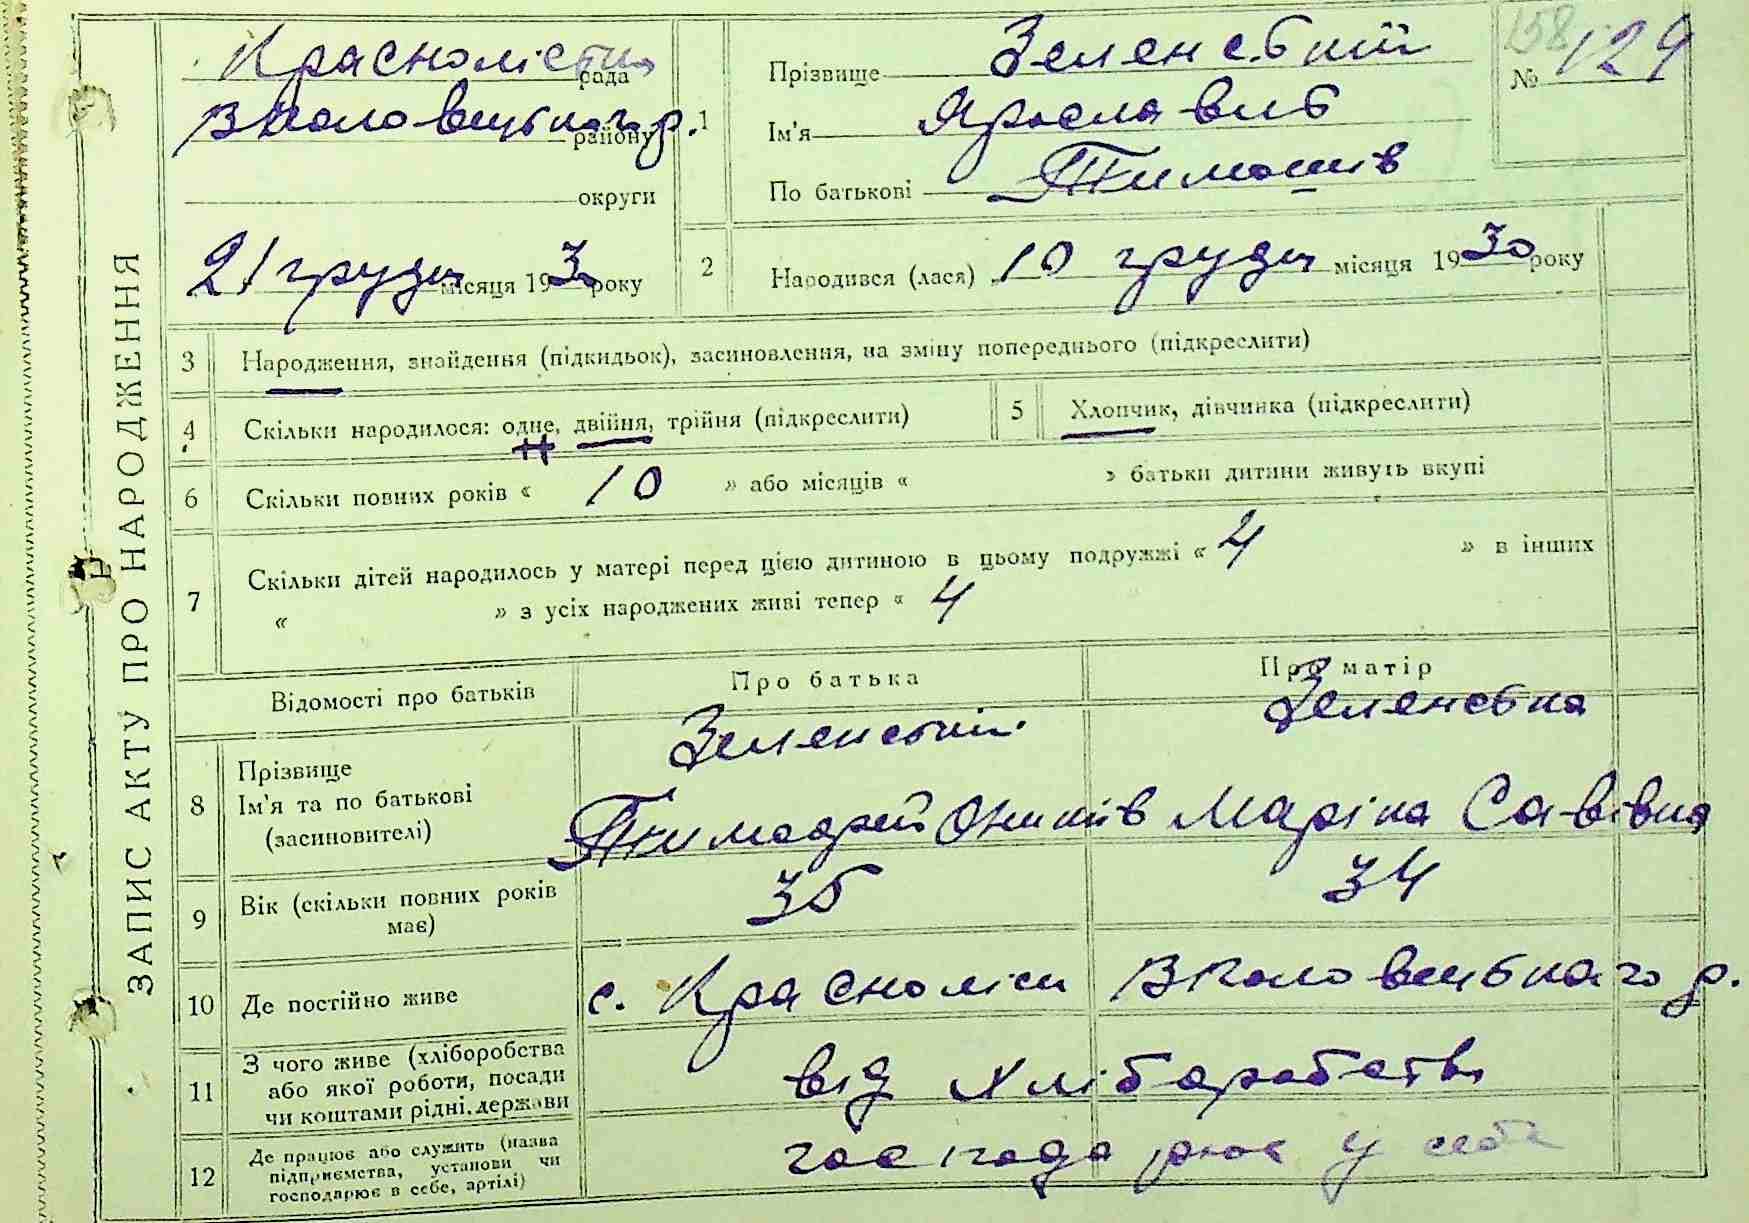 ЗАПИС АКТУ ПРО НАРОДЖЕННЯ
Краснолісти рада
району р.
округи
21 грудн місяця 1930 року
158 № 129
1 Прізвище Зеленський
Ім'я Ярославль
По батькові Тимошів
2 Народився (лася) 10 грудн місяця 1930 року
3 Народження, знайдення (підкидьок), засиновлення, на зміну попереднього (підкреслити)
4 Скільки народилося: одне, двійня, трійня (підкреслити)
5 Хлопчик, дівчинка (підкреслити)
6 Скільки повних років « 10 » або місяців « » батьки дитини живуть вкупі
7 Скільки дітей народилось у матері перед цією дитиною в цьому подружжі « 4 » в інших
« » з усіх народжених живі тепер « 4
Відомості про батьків Про батька Про матір
8 Прізвище Зеленський Зеленська
Ім'я та по батькові Тимофей Маріна Саввівна
(засиновителі)
9 Вік (скільки повних років має) 35 34
10 Де постійно живе с. Красноліси р.
11 З чого живе (хліборобства
або якої роботи, посади
чи коштами рідні, держави від хліборобства
12 Де працює або служить (назва
підприємства, установи чи
господарює в себе, артілі) господарює у себе